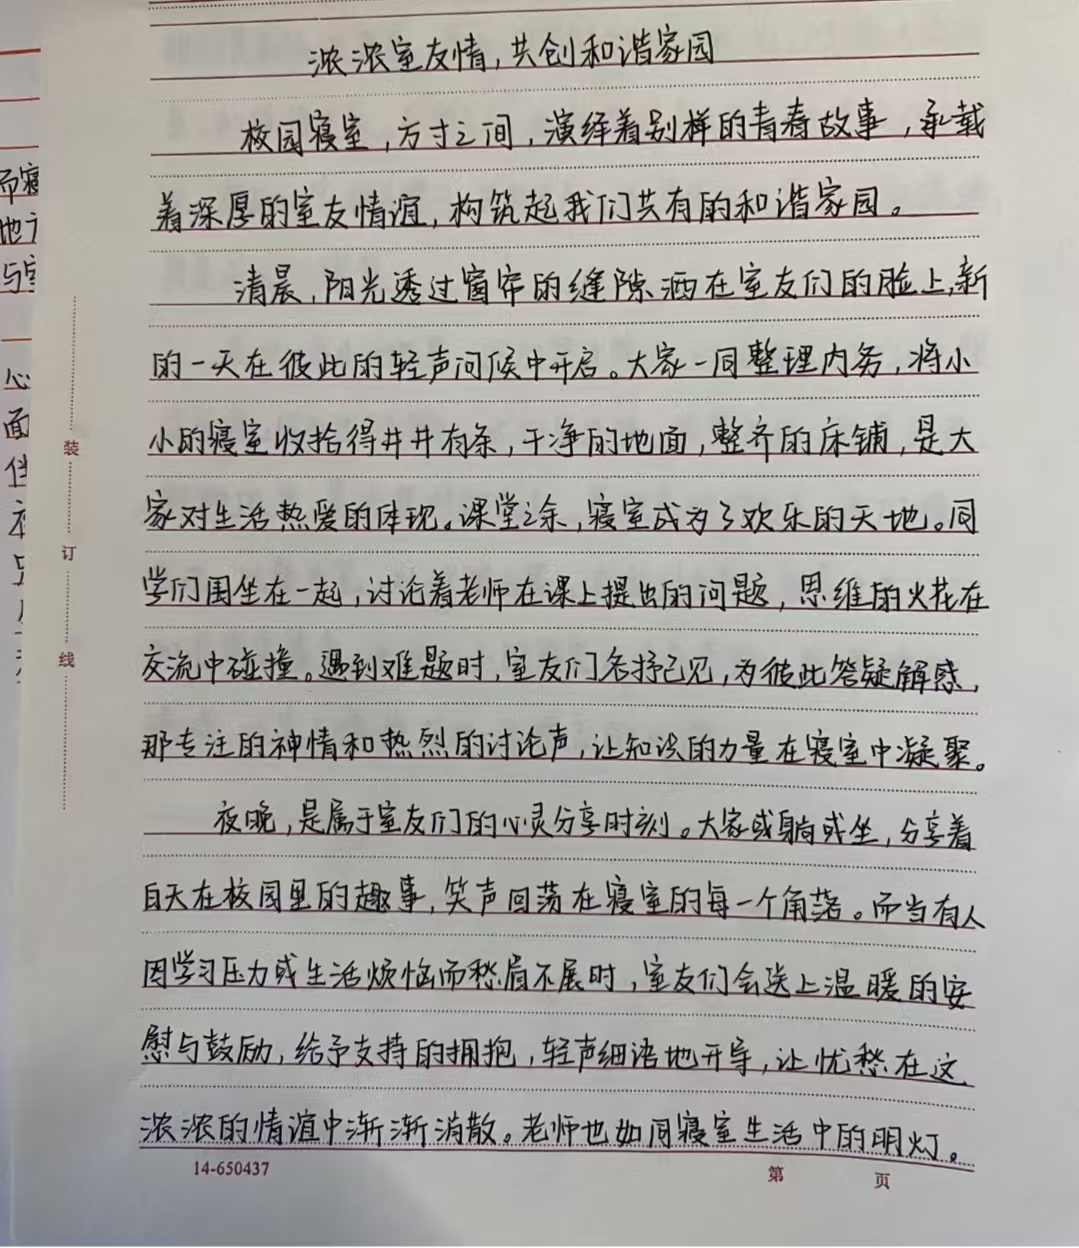 浓浓室友情,共创和谐家园
校园寝室,方寸之间,演绎着别样的青春故事,承载
着深厚的室友情谊,构筑起我们共有的和谐家园。
清晨,阳光透过窗帘的缝隙洒在室友们的脸上,新
的一天在彼此的轻声问候中开启。大家一同整理内务,将小
小的寝室收拾得井井有条,干净的地面,整齐的床铺,是大
家对生活热爱的体现。课堂之余,寝室成为了欢乐的天地。同
学们围坐在一起,讨论着老师在课上提出的问题,思维的火花在
交流中碰撞。遇到难题时,室友们各抒己见,为彼此答疑解惑,
那专注的神情和热烈的讨论声,让知识的力量在寝室中凝聚。
夜晚,是属于室友们的心灵分享时刻。大家或躺或坐,分享着
白天在校园里的趣事,笑声回荡在寝室的每一个角落。而当有人
因学习压力或生活烦恼而愁眉不展时,室友们会送上温暖的安
慰与鼓励,给予支持的拥抱,轻声细语地开导,让忧愁在这
浓浓的情谊中渐渐消散。老师也如同寝室生活中的明灯。
14-650437
第 页
装
订
线
而寝
地
与室
心
面